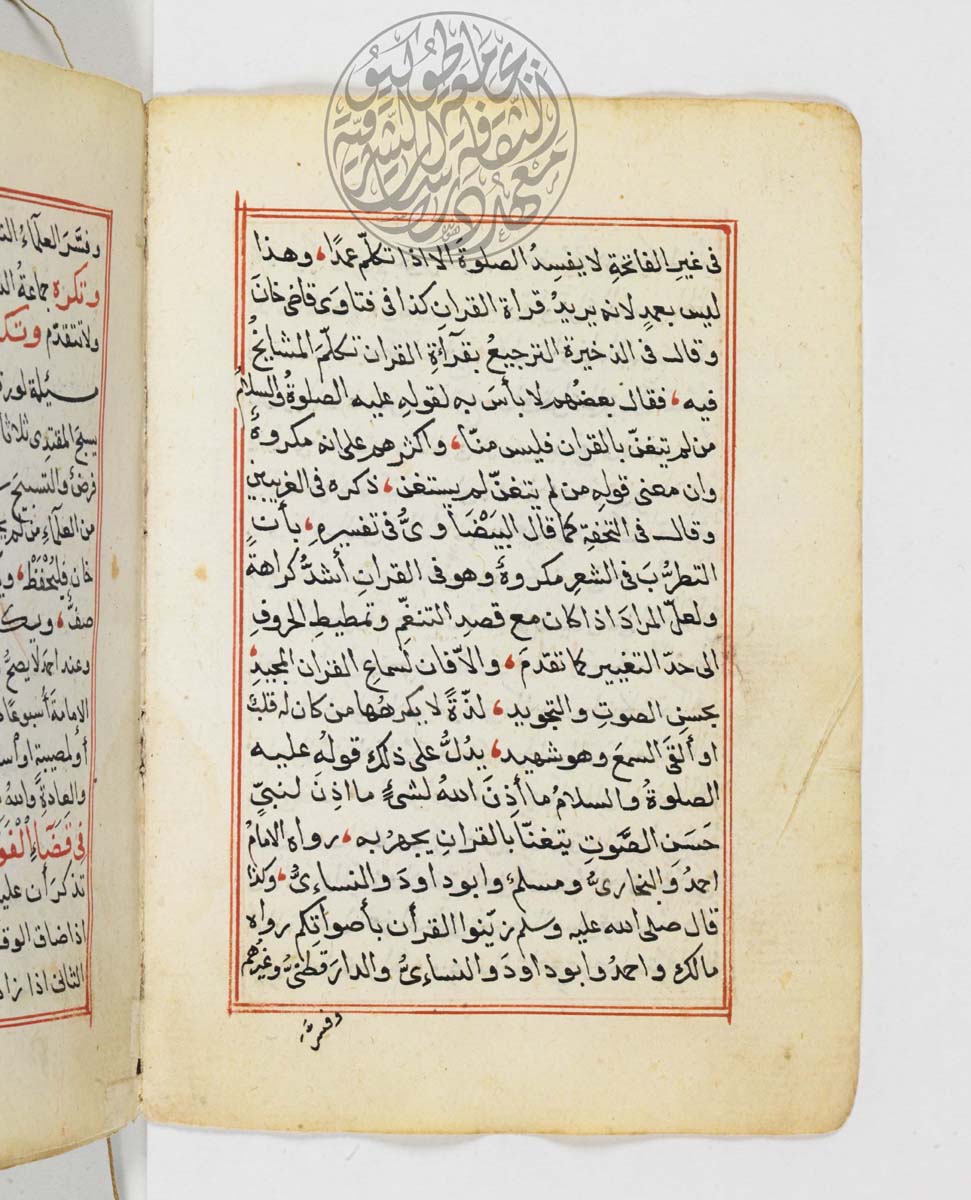 في غيرِ الفاتحةِ لا يفسِدُ الصلوةَ الا اذا تكلّم عمدًا، وهذا
ليس بعمدٍ لانه يريدُ قرأة القرانِ كذا في فتاوَى قاضي خانَ
وقال في الذخيرة الترجيعُ بقرآءَةِ القران تكلّمَ المشايخُ
فيه، فقال بعضُهم لا بأسَ به لقولهِ عليه الصلوةُ والسلامُ
من لم يتغنّ بالقران فليس منّا، واكثرهم على انه مكروهٌ
وان معنى قولهِ من لم يتغنّ لم يستغن، ذكره في الغريبين
وقال في التحفةِ كما قال البَيْضَاوىُّ في تفسيرهِ، بأنّ
التطرُّبَ في الشعرِ مكروهٌ وهو في القرانِ أشدُّ كراهةً
ولعلّ المرادَ اذا كان مع قصدِ التنغّمِ وتمطيطِ الحروفِ
الى حدّ التغييرِ كما تقدمَ، والاّ فان لسماعِ القران المجيدِ،
بحسنِ الصوتِ والتجويد، لذّةً لا يكرهُها من كان له قلبٌ
او ألقَى السمعَ وهو شهيد، يدلُّ على ذلك قولهُ عليه
الصلوةُ والسلامُ ما أَذِنَ اللهُ لشئٍ ما اذِنَ لنبيٍّ
حَسَنِ الصَّوتِ يتغنّا بالقرانِ يجهرُ به، رواه الامامُ
احمدُ والبخاريُّ ومسلمٌ وابو داودَ والنساءىُّ، وكذا
قال صلى الله عليه وسلم زيّنوا القرأن بأصواتِكم رواه
مالك واحمدُ وابو داودَ والنساءىُّ والدارَقطنىُّ وغيرُهم
وفسّر
وفسَّرَ العلمآءُ
وتكره جماعةُ
ولا تتقدّم وتك
يسبح المقتدى ثلاثا
فرضٌ والتسبيح
من العلمآءِ من لم
خان فليُحْفَظْ،
صفٌّ،
وعند احمدَ لا يصحُّ
الامامةَ أسبوعًا
أو لمصيبةٍ او
والعادةِ والله
في قضَآءِ الْفَوَ
تذكرَ أن عليه
اذا ضاق الوق
الثاني اذا زاد